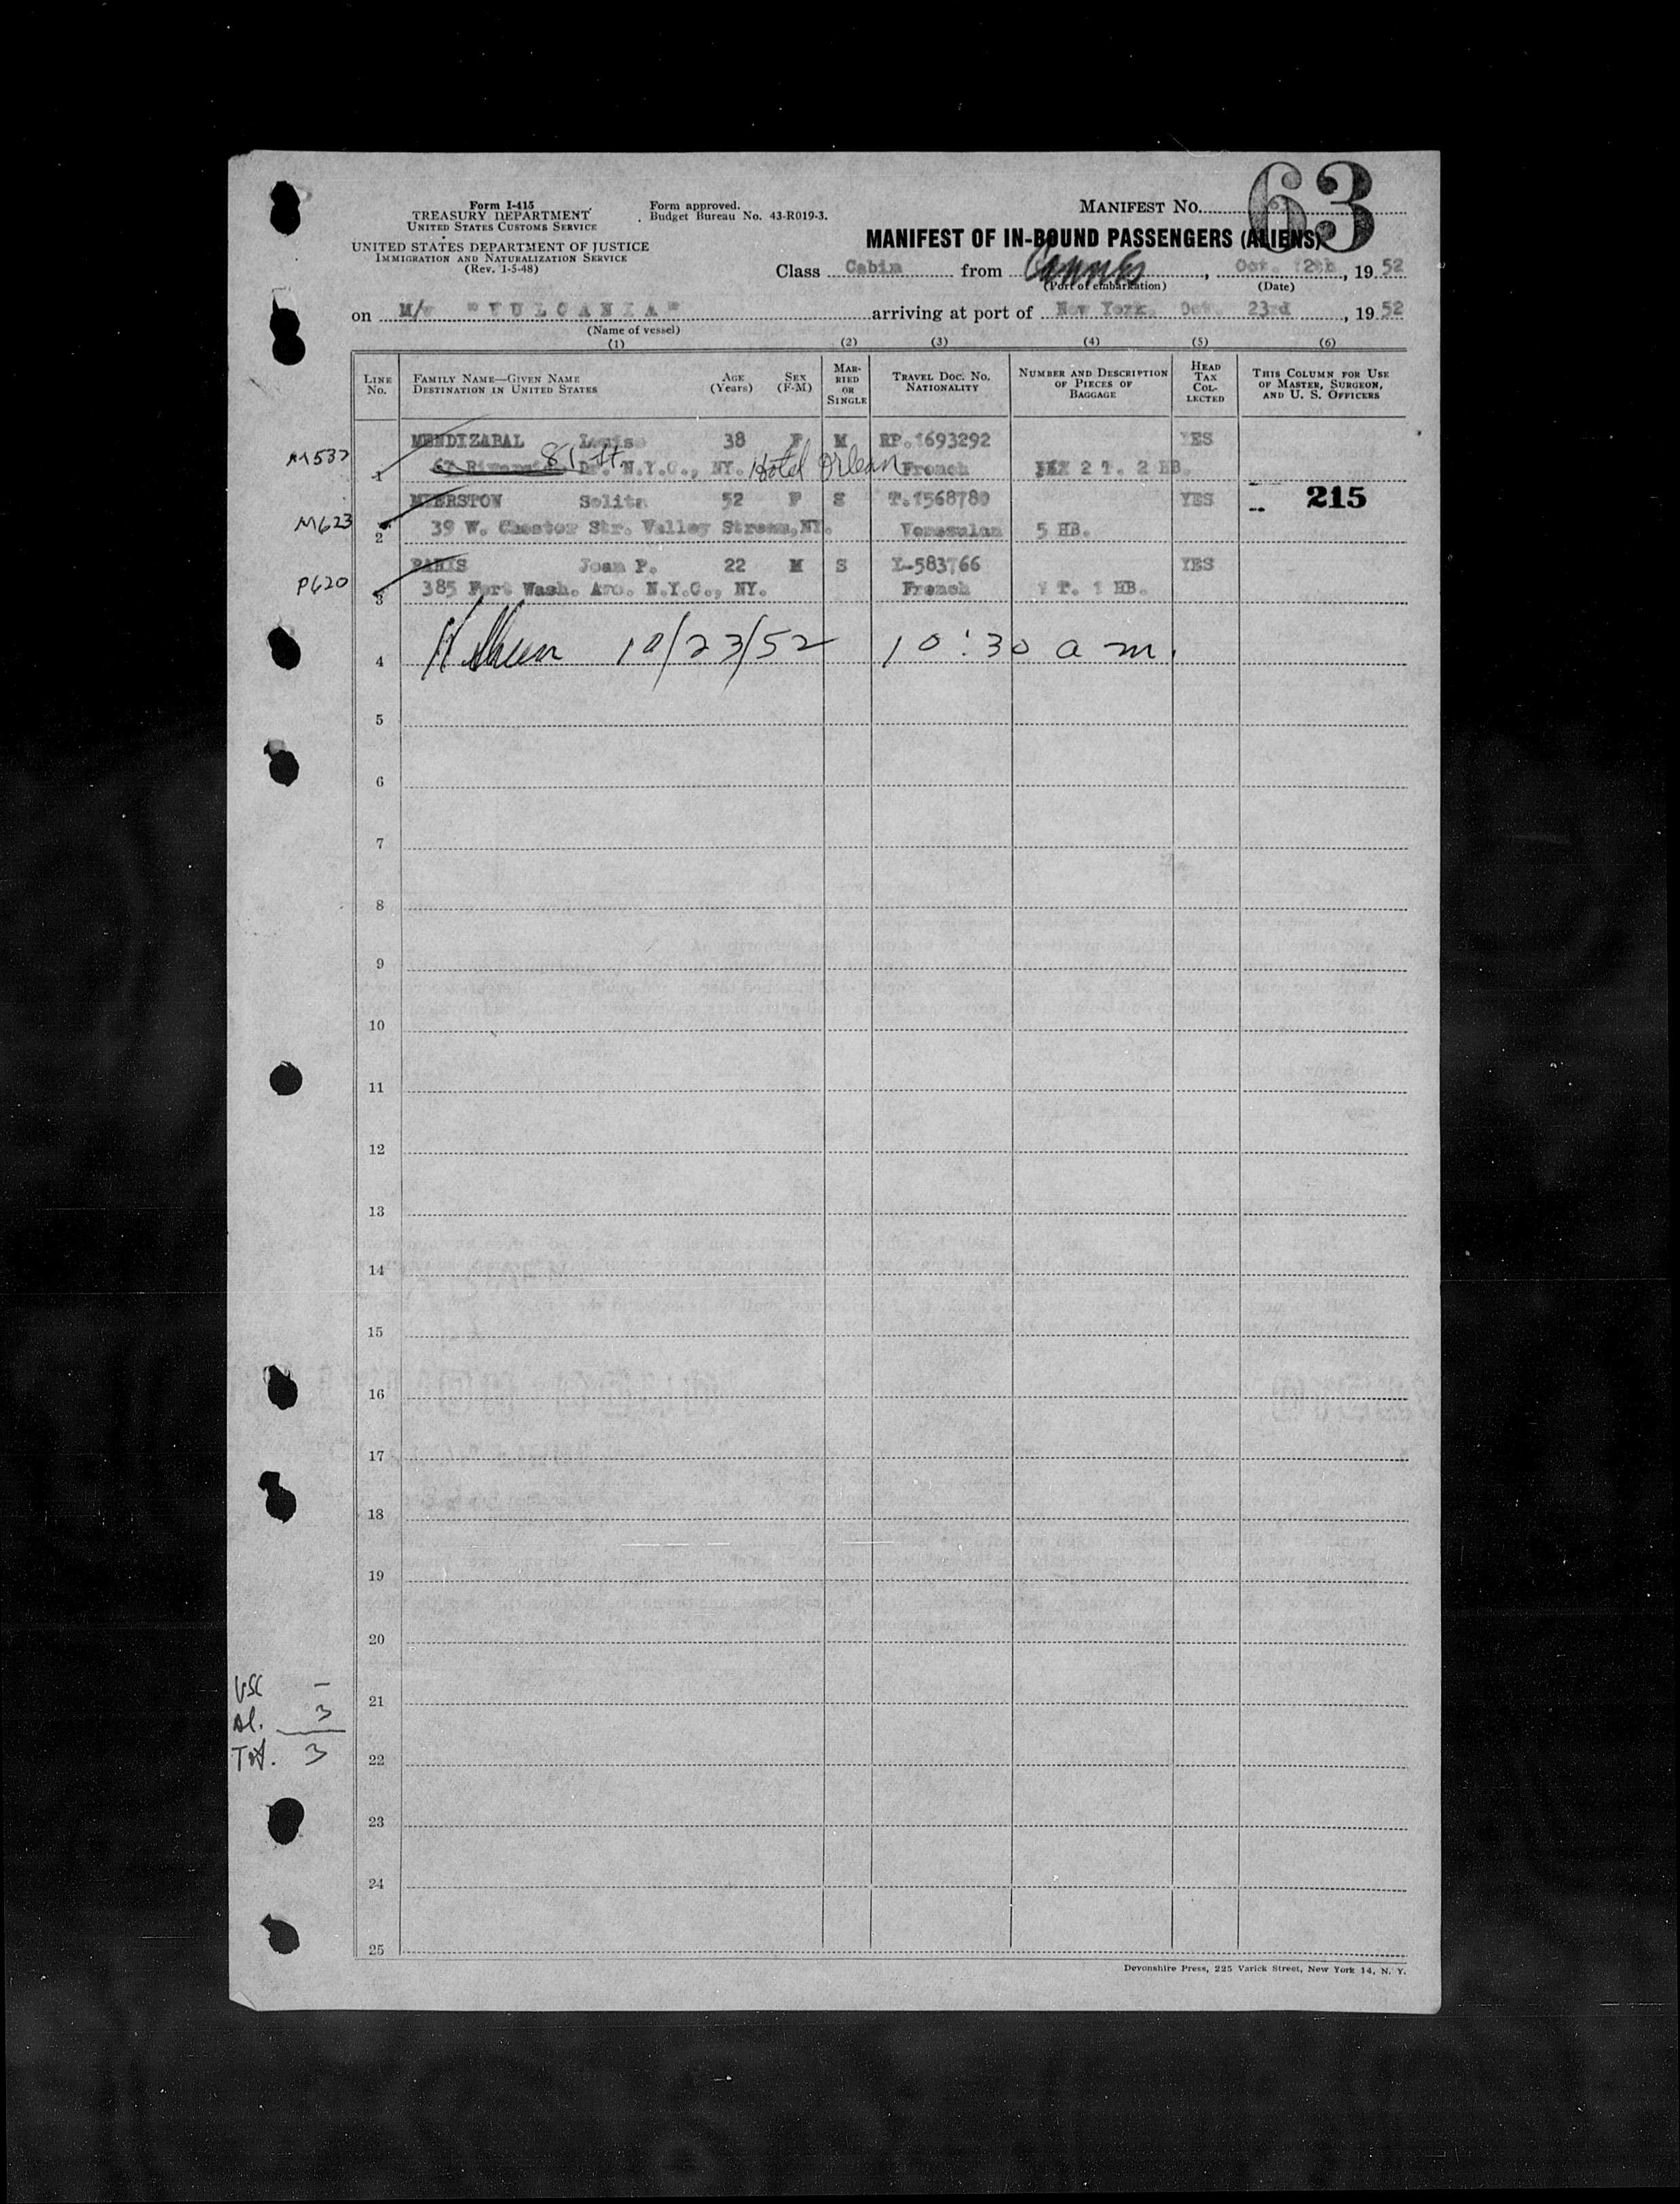 63
Form I-415
TREASURY DEPARTMENT
UNITED STATES CUSTOMS SERVICE
UNITED STATES DEPARTMENT OF JUSTICE
IMMIGRATION AND NATURALIZATION SERVICE
(Rev. 1-5-48)
Form approved.
Budget Bureau No. 43-R019-3.
MANIFEST NO.
MANIFEST OF IN-BOUND PASSENGERS (ALIENS)
Class Cabin from Cannes, Oct. 12th, 19 52
(Port of embarkation) (Date)
on M/v "VULCANIA" arriving at port of New York, Oct. 23rd, 19 52
(Name of vessel)
(1) (2) (3) (4) (5) (6)
LINE NO.
FAMILY NAME—GIVEN NAME
DESTINATION IN UNITED STATES
AGE (Years)
SEX (F-M)
MARRIED OR SINGLE
TRAVEL DOC. NO. NATIONALITY
NUMBER AND DESCRIPTION OF PIECES OF BAGGAGE
HEAD TAX COLLECTED
THIS COLUMN FOR USE OF MASTER, SURGEON, AND U. S. OFFICERS
MENDIZABAL Louise 38 F M RP.1693292 YES
M537 1 67 Riverside Dr. N.Y.C., NY. 81 St. Hotel Orlean French 2 T. 2 HB.
MEERSTON Solita 52 F S T.1568780 YES 215
M623 2 39 W. Chester Str. Valley Stream, NY. Venezulan 5 HB.
PARIS Jean P. 22 M S L-583766 YES
P620 3 385 Fort Wash. Ave. N.Y.C., NY. French 1 T. 1 HB.
4 10/23/52 10:30 a m.
5
6
7
8
9
10
11
12
13
14
15
16
17
18
19
20
USC –
21
Al. 3
Tot. 3
22
23
24
25
Devonshire Press, 225 Varick Street, New York 14, N. Y.